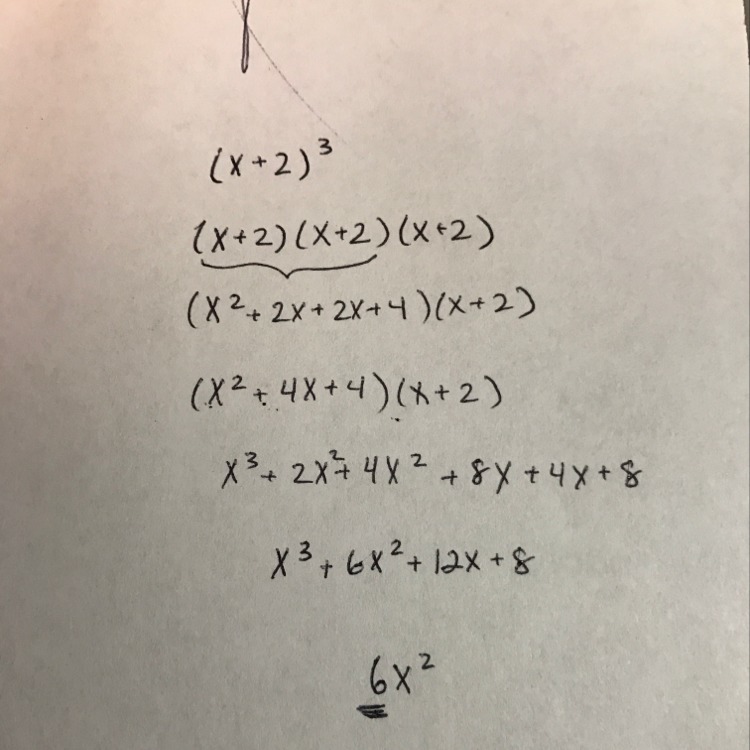 (x+2)³
(x+2)(x+2)(x+2)
(x²+2x+2x+4)(x+2)
(x²+4x+4)(x+2)
x³+2x²+4x²+8x+4x+8
x³+6x²+12x+8
6x²